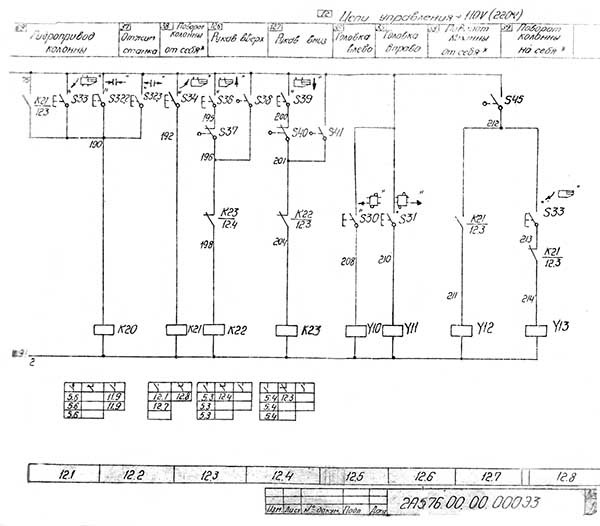 Цепи управления ~ 110V (220V)
Гидропривод колонны
Отжим станка
Поворот колонны от себя*
Рукав вверх
Рукав вниз
Головка влево
Головка вправо
колонны от себя*
Поворот на себя*
K21 12.3
S33
S322
S323
S34
S36
S38
S39
S45
190
192
195
S37
196
200
S40
S41
201
212
K23 12.4
198
K22 12.3
204
S30
208
S31
210
K21 12.3
211
S33
213
K21 12.3
214
K20
K21
K22
K23
Y10
Y11
Y12
Y13
2
5.5 11.9
5.6 11.9
5.6
12.1 12.8
12.7
5.3 12.4
5.3
5.3
5.4 12.3
5.4
5.4
12.1 12.2 12.3 12.4 12.5 12.6 12.7 12.8
2А576.00.00.000Э3
Изм. Лист № докум. Подп. Дата